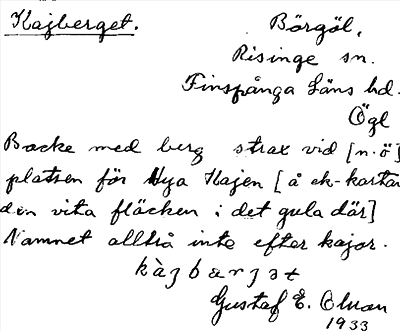 Kajberget.
Börgöl,
Risinge sn.
Finspånga Läns hd.
Ögl
Backe med berg strax vid [n.ö]
platsen för Nya Kajen [å ek-kartan
den vita fläcken i det gula där]
Namnet alltså inte efter kajor.
Gustaf E. Olson
1933